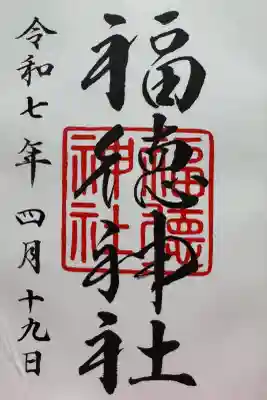 福徳神社
福德
神社
令和七年 四月十九日